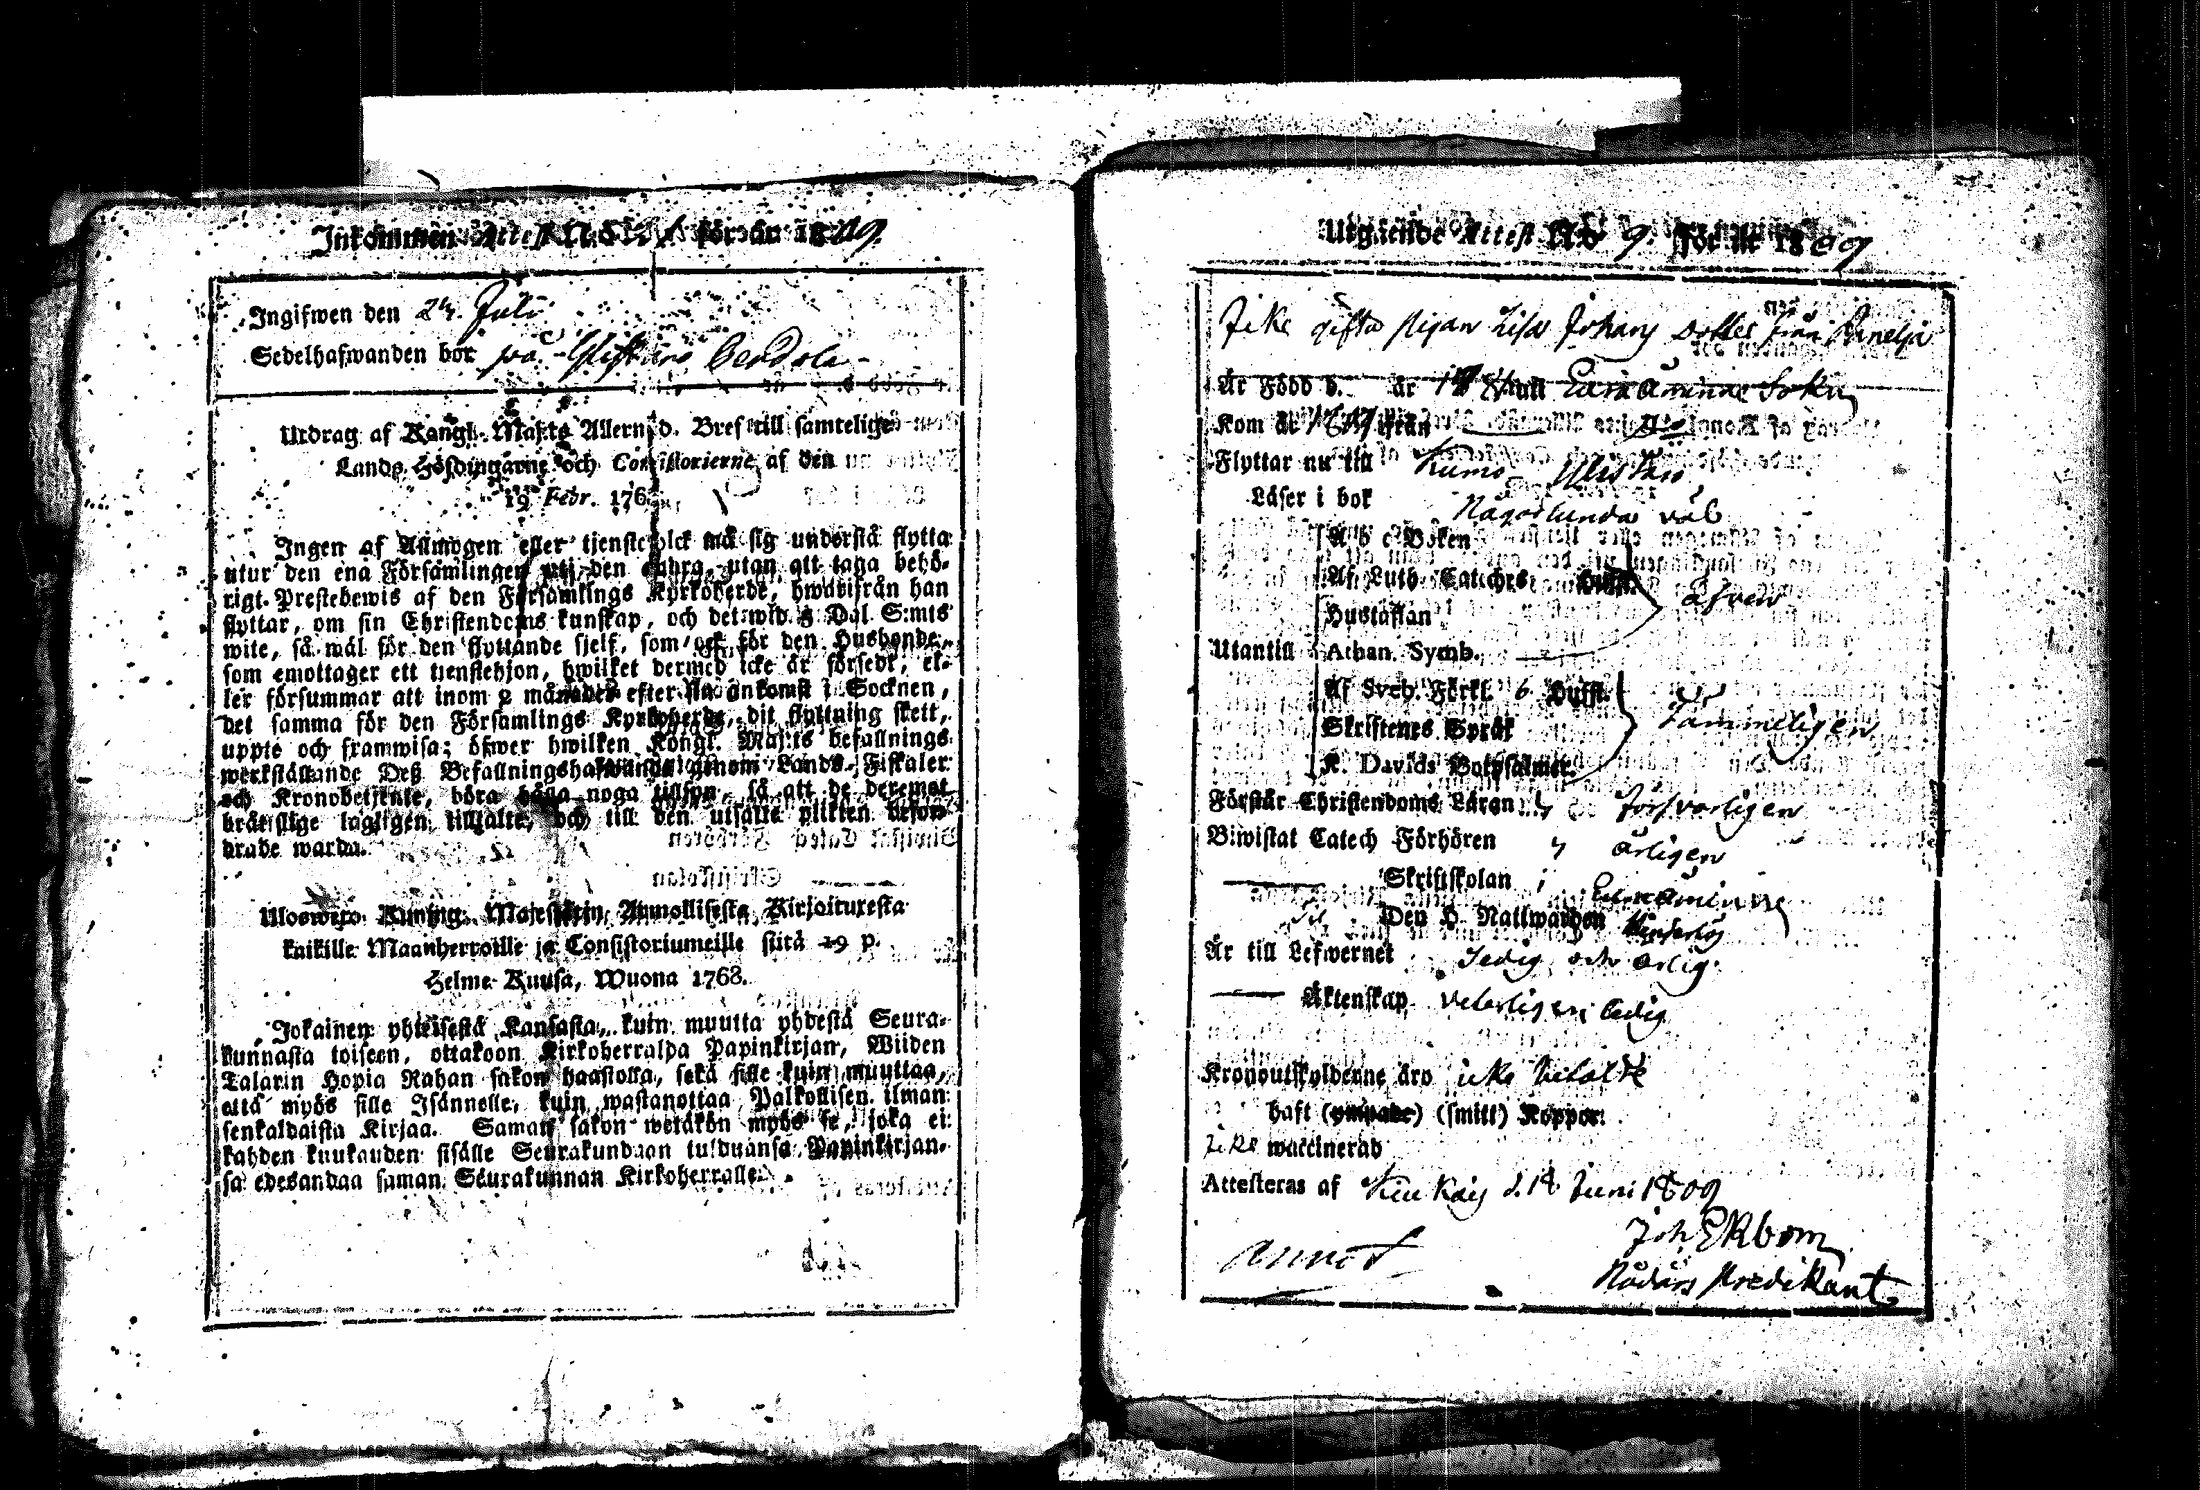 Inkommen Attest N:o för år 1809.
Ingifwen den 24. Juli
Sedelhafwanden bor på
Utdrag af Kongl. Maj:ts Allernåd. Bref till samtelige
Lands-Höfdingarne och Consistorierne af den
19 Febr. 176
Ingen af Allmogen eller tjenstefolck må sig understå flytta
utur den ena Församlingen uti den andra, utan att taga behö-
rigt Prestebewis af den Församlings Kyrkoherde, hwarifrån han
flyttar, om sin Christendoms kunskap, och det wid 5 Dal. S:mts
wite, så wäl för den flyttande sjelf, som ock för den Husbonde,
som emottager ett tjenstehjon, hwilket dermed icke är försedt, el-
ler försummar att inom 2 månader efter sin ankomst i Socknen,
det samma för den Församlings Kyrkoherde, dit flyttning skett,
uppte och framwisa; öfwer hwilken Kongl. Maj:ts befallnings
werkställande Deß Befallningshafwande genom Lands-Fiskaler
och Kronobetjente, böra hålla noga tillsyn, så att de deremot
bråtslige lagligen tilltalte, och till den utsatte plikten befor-
drade warda.
Ulosweto Kuning. Majestetin Armollisesta Kirjoituxesta
kaikille Maanherroille ja Consistoriumeille siitä 19 p.
Helme-Kuusa, Wuona 1768.
Jokainen yhteisestä Kansasta, kuin muutta yhdestä Seura-
kunnasta toiseen, ottakoon Kirkoherralda Papinkirjan, Wiiden
Talarin Hopia Rahan sakon haastolla, sekä sille kuin muuttaa,
että myös sille Isännelle, kuin wastanottaa Palkollisen ilman
senkaldaista Kirjaa. Saman sakon wetäkön myös se, joka ei
kahden kuukauden sisälle Seurakundaan tulduansa Papinkirjan-
sa edesandaa saman Seurakunnan Kirkoherralle.
Utgående Attest N:o 9. för år 1809
Icke gifta pigan Lisa Johans dotter från
Är Född d. år 17 uti Euraåminne Sokn
Kom år från
Flyttar nu till Kumo
Läser i bok Någorlunda väl
A b c Boken
Af Luth. Cateches. Hufst.
Hustaflan äfven
Utantill Athan. Symb.
Af Sveb. Förkl. 6 Hufst.
Skriftenes Språk Tämmeligen
K. Davids Botpsalmer.
Förstår Christendoms Läran försvarligen
Biwistat Catech Förhören årligen
Skriftskolan Euraåminne
Den H. Nattwarden
Är till Lefwernet Sedig och ärlig.
Äktenskap veterligen ledig
Kronoutskylderne äro icke betalte
haft (ympade) (smitt) Koppor.
Icke waccinerad
Attesteras af d. 18 Juni 1809
Joh Ekbom
Annot
Nådårs Predikant